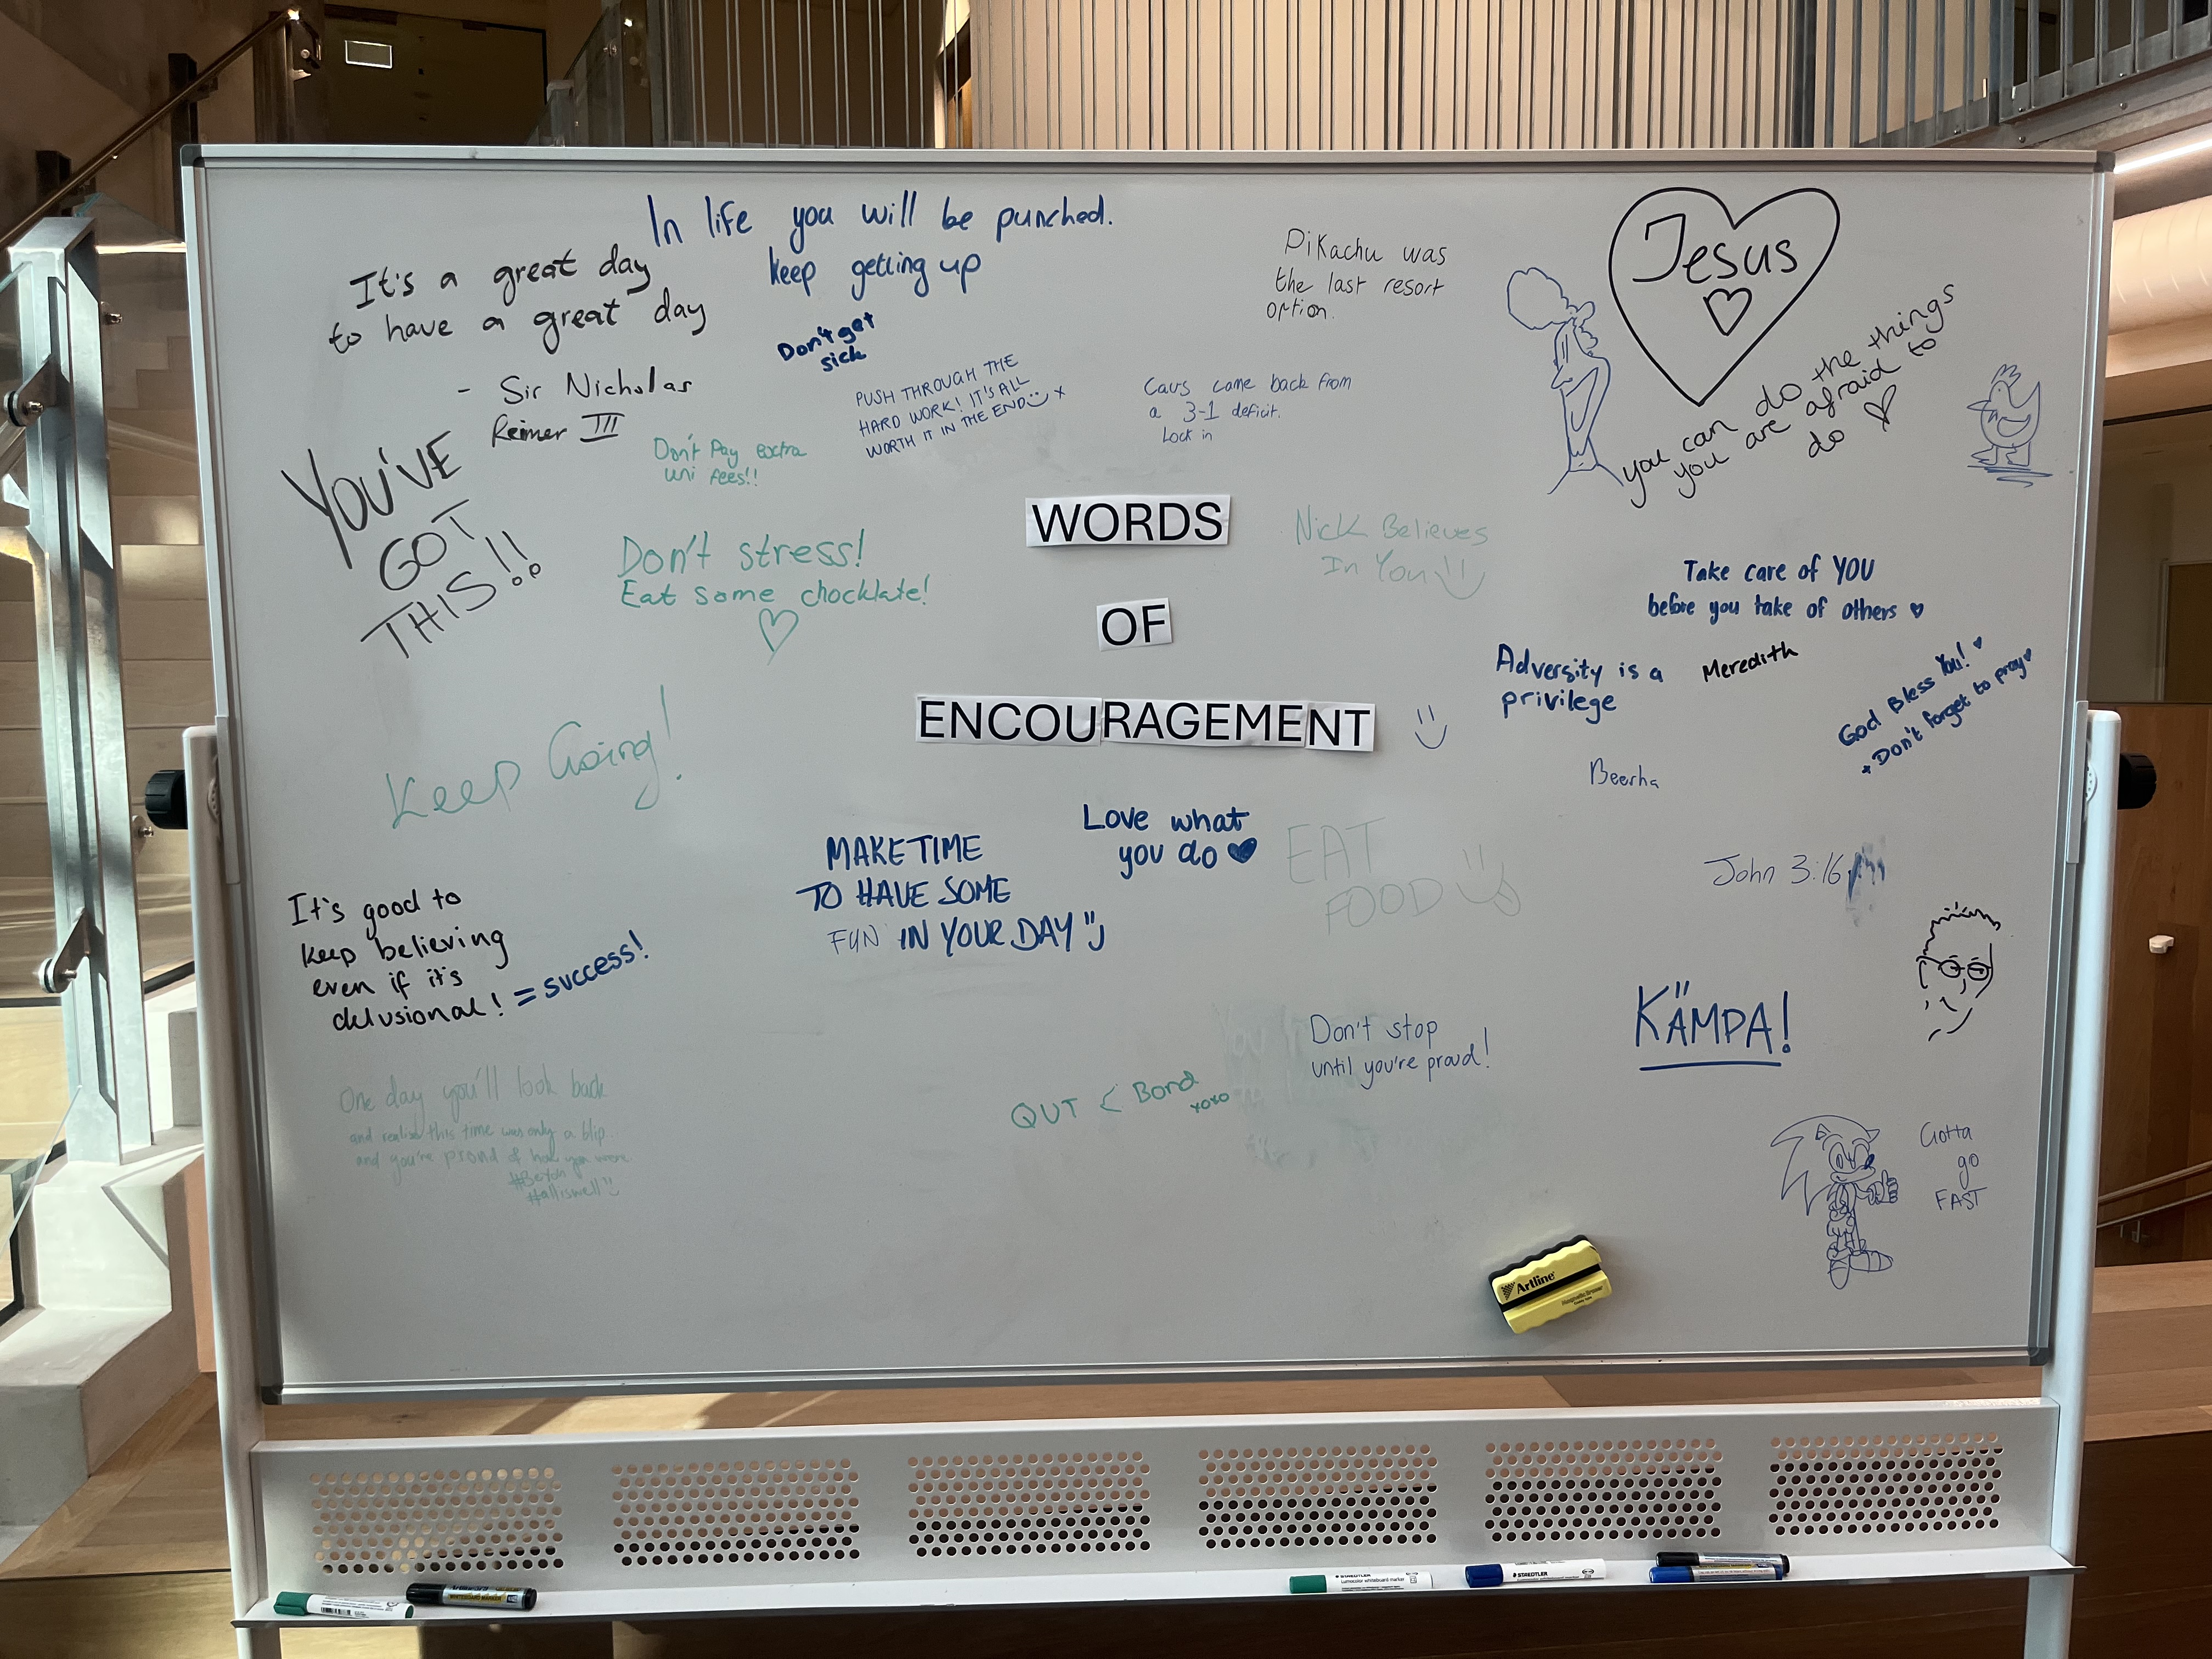 In life you will be punched.
keep getting up
It's a great day
to have a great day
- Sir Nicholas
Reimer III
Don't get
sick
PUSH THROUGH THE
HARD WORK! IT'S ALL
WORTH IT IN THE END x
Cavs came back from
a 3-1 deficit.
Lock in
Pikachu was
the last resort
option.
Jesus
you can do the things
you are afraid to
do
YOU'VE
GOT
THIS!!
Don't Pay extra
uni fees!!
Don't stress!
Eat some chocklate!
WORDS
OF
ENCOURAGEMENT
Nick Believes
In You
Take care of YOU
before you take of others
Adversity is a
privilege
Meredith
God Bless You!
+ Don't forget to pray
Beerha
Keep Going!
MAKE TIME
TO HAVE SOME
FUN IN YOUR DAY
Love what
you do
EAT
FOOD
John 3:16
It's good to
keep believing
even if it's
delusional! = success!
KÄMPA!
Don't stop
until you're proud!
QUT < Bond
xoxo
One day you'll look back
and realise this time was only a blip..
and you're proud of how you were
#alliswell
Gotta
go
FAST
Artline
STAEDTLER
Lumocolor whiteboard marker
STAEDTLER
WHITEBOARD MARKER